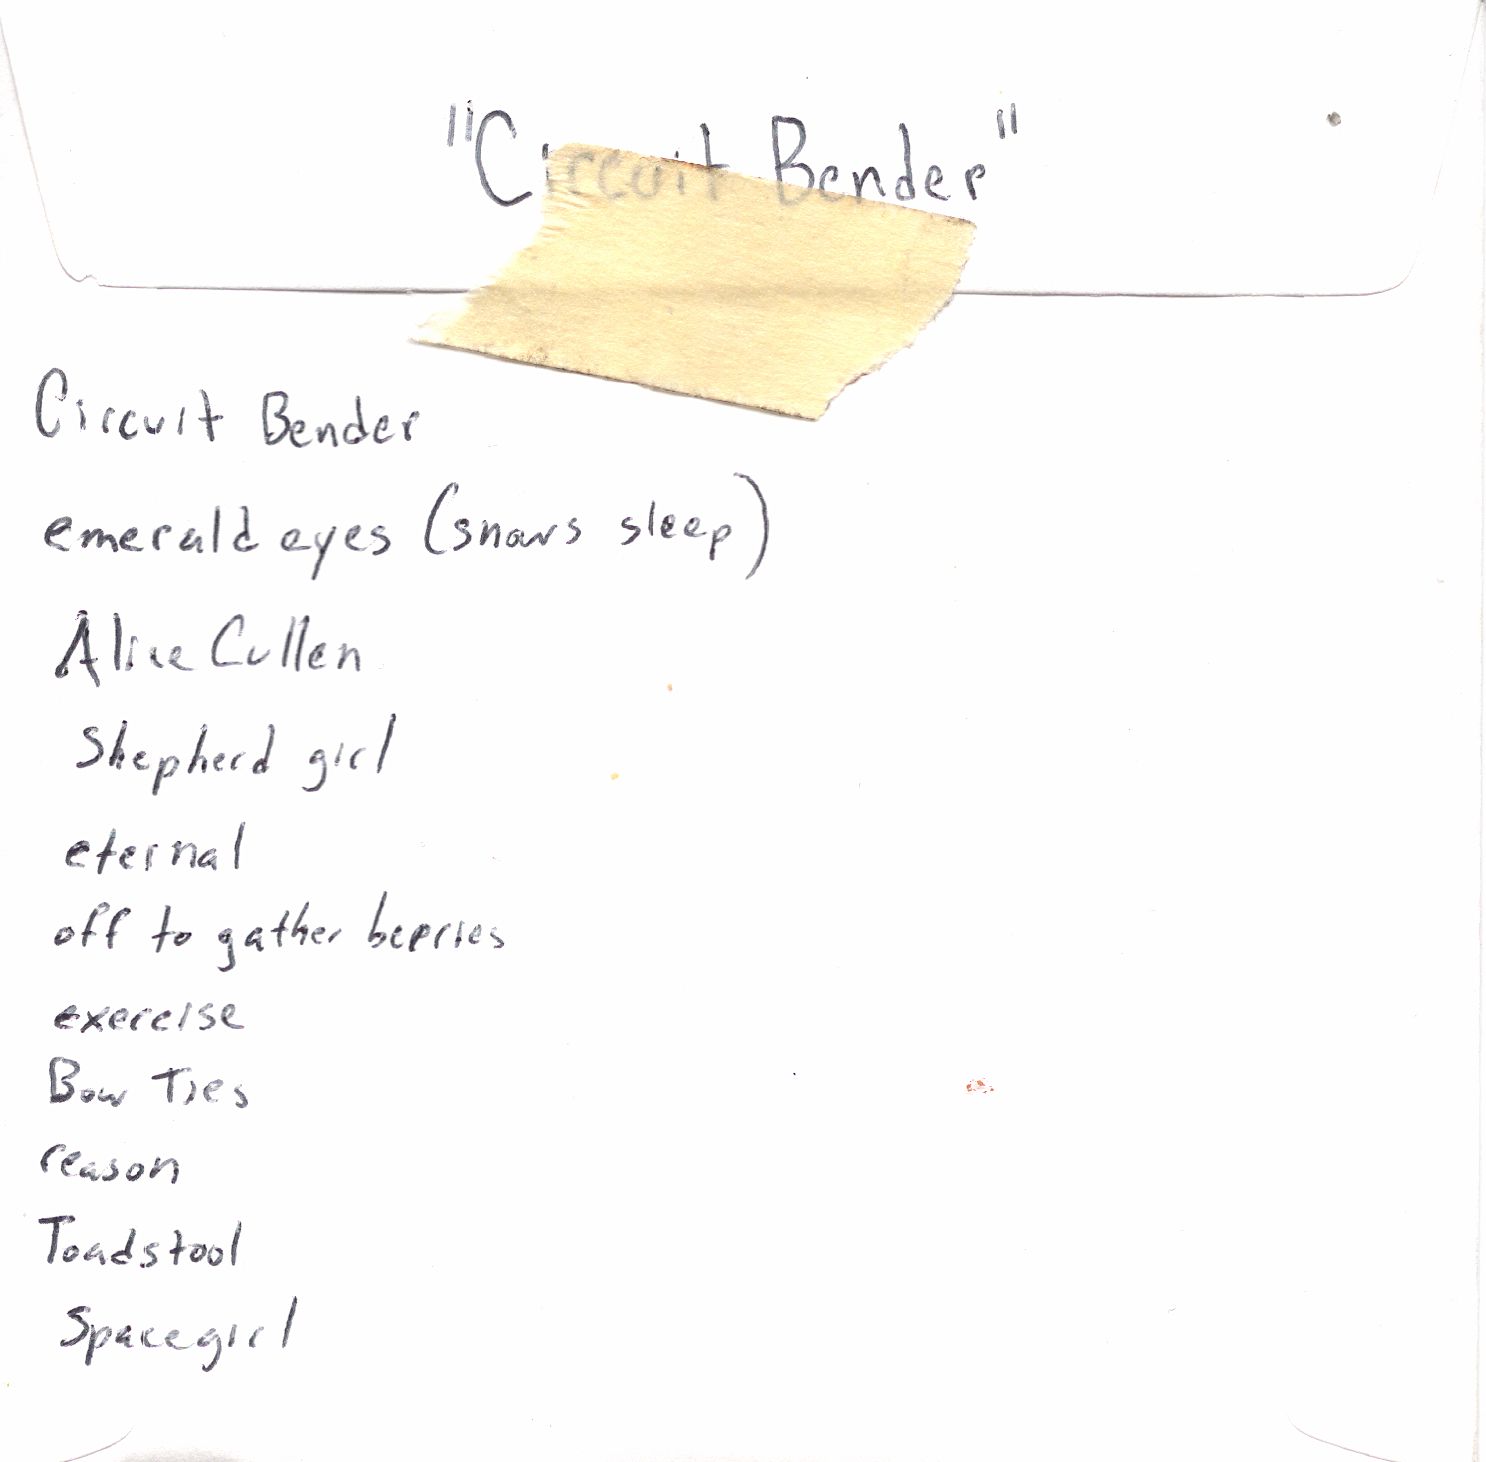 "Circuit Bender"
Circuit Bender
emerald eyes (snows sleep)
Alice Cullen
Shepherd girl
eternal
off to gather berries
exercise
Bow Ties
reason
Toadstool
Spacegirl